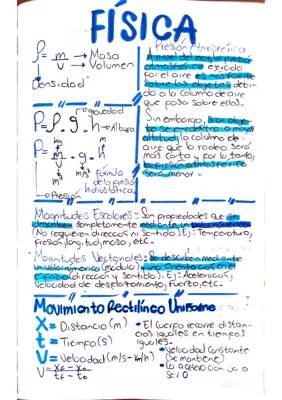 FÍSICA
ρ = m/v → Masa
→ Volumen
Densidad
P = ρ . g . h → Altura
gravedad
P = m/v . g . h
kg
m³
m/s²
m
Fórmula
de la presión
hidrostática
→ Presión
Presión Atmosférica
A nivel del mar la presión
atmosférica ejercida
por el aire es más fuerte
sobre los objetos debi-
do a la columna de aire
que posa sobre ellos.
Sin embargo, si un obje-
to se encuentra a mayor
altitud, la columna de
aire que lo rodea será
más corta y por lo tanto,
la presión atmosférica
será menor.
Magnitudes Escalares: Son propiedades que se
describen completamente mediante un
(No requieren dirección ni sentido). Ej: Temperatura,
Presión, longitud, masa, etc.
Magnitudes Vectoriales: Se describen mediante
un valor numérico (módulo) y una orientación en el
espacio (dirección y sentido). Ej: Aceleración,
velocidad de desplazamiento, fuerza, etc.
Movimiento Rectilíneo Uniforme
X = Distancia (m)
t = Tiempo (s)
V = Velocidad (m/s - km/h)
V = Xf - Xo / tf - to
• El cuerpo recorre distan-
cias iguales en tiempos
iguales.
• Velocidad constante
(se mantiene)
• La aceleración va a
ser 0